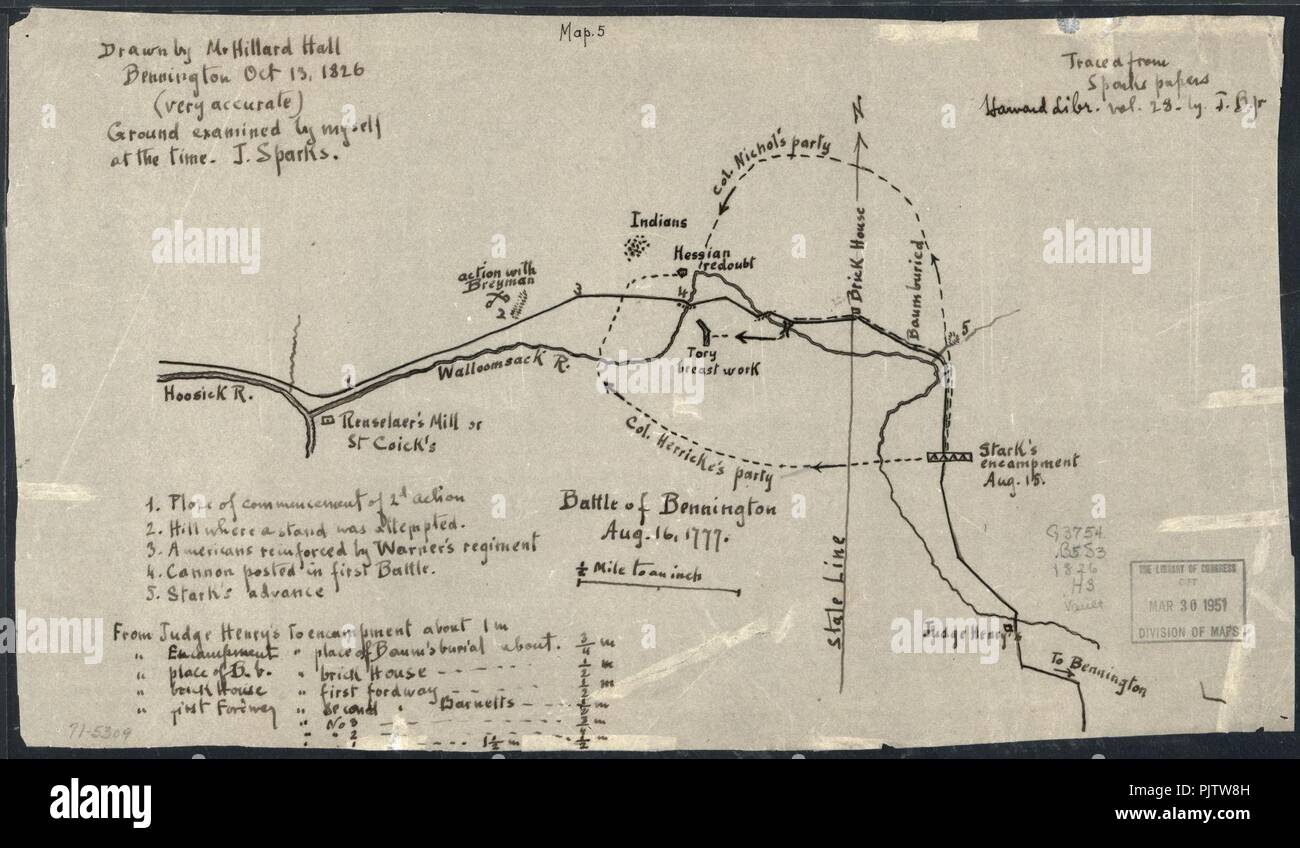 Map. 5
Drawn by Mr Hillard Hall
Bennington Oct 13, 1826
(very accurate)
Ground examined by myself
at the time. J. Sparks.
Traced from
Sparks papers
Harvard Libr. vol. 28. by J.
N
Col. Nichol's party
Indians
Hessian
redoubt
action with
Breyman
2
3
4
Brick House
Baum buried
5
Tory
breast work
Walloomsack R.
Hoosick R.
1
Renselaer's Mill or
St Coick's
Col. Herricke's party
Stark's
encampment
Aug. 15.
1. Place of commencement of 2d action
2. Hill where a stand was attempted.
3. Americans reinforced by Warner's regiment
4. Cannon posted in first Battle.
5. Stark's advance
Battle of Bennington
Aug. 16, 1777.
½ Mile to an inch
State Line
G3754
.B5S3
1826
.H3
Vault
THE LIBRARY OF CONGRESS
GIFT
MAR 30 1951
DIVISION OF MAPS
Judge Henry's
To Bennington
From Judge Henry's To encampment about 1 m
" Encampment " place of Baum's burial about. ¾ m
" place of B. b. " brick House - - - - ½ m
" brick House " first fordway - - - ½ m
" first Fordway " second " Barnetts - - ½ m
" No 3
" " 2 - - - - 1½ m
71-5309
alamy
Image ID: PJTW8H
www.alamy.com